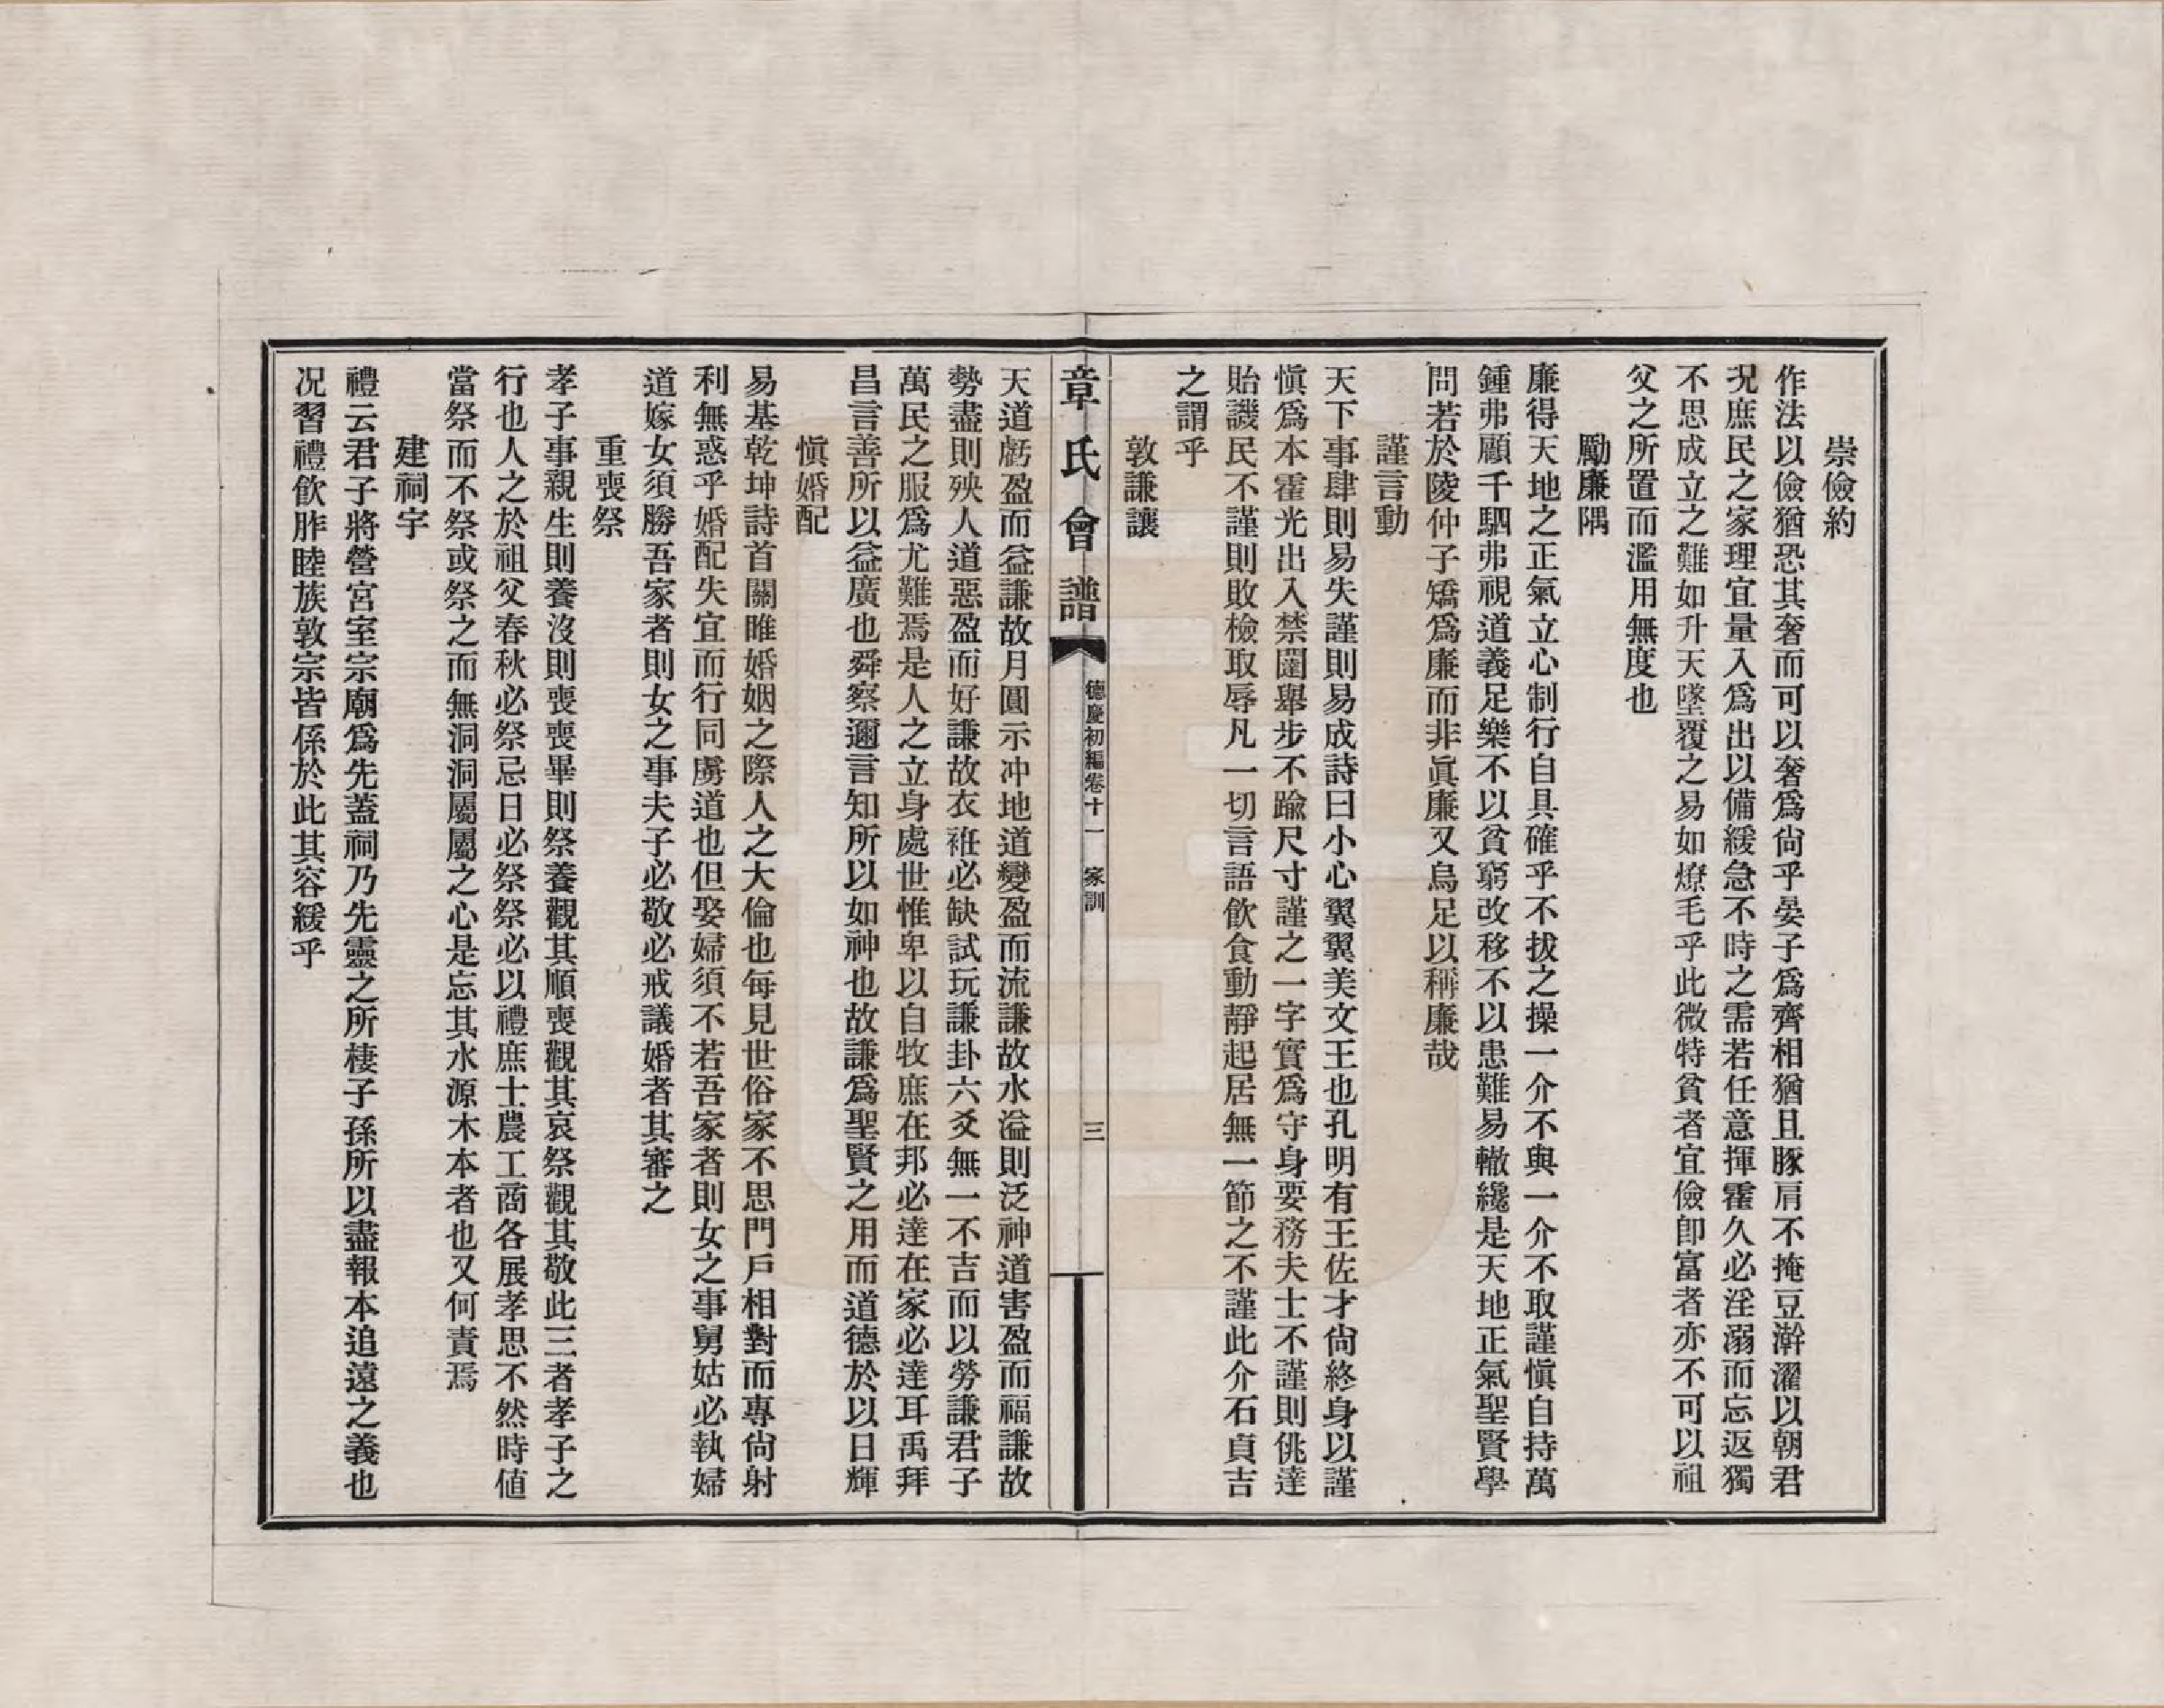 崇儉約
作法以儉猶恐其奢而可以奢爲尙乎晏子爲齊相猶且豚肩不掩豆澣濯以朝君
况庶民之家理宜量入爲出以備緩急不時之需若任意揮霍久必淫溺而忘返獨
不思成立之難如升天墜覆之易如燎毛乎此微特貧者宜儉卽富者亦不可以祖
父之所置而濫用無度也
勵廉隅
廉得天地之正氣立心制行自具確乎不拔之操一介不與一介不取謹愼自持萬
鍾弗顧千駟弗視道義足樂不以貧窮改移不以患難易轍纔是天地正氣聖賢學
問若於陵仲子矯爲廉而非眞廉又烏足以稱廉哉
謹言動
天下事肆則易失謹則易成詩曰小心翼翼美文王也孔明有王佐才尙終身以謹
愼爲本霍光出入禁闥舉步不踰尺寸謹之一字實爲守身要務夫士不謹則佻達
貽譏民不謹則敗檢取辱凡一切言語飮食動靜起居無一節之不謹此介石貞吉
之謂乎
敦謙讓
章氏會譜
德慶初編卷十一 家訓
三
天道虧盈而益謙故月圓示冲地道變盈而流謙故水溢則泛神道害盈而福謙故
勢盡則殃人道惡盈而好謙故衣袵必缺試玩謙卦六爻無一不吉而以勞謙君子
萬民之服爲尤難焉是人之立身處世惟卑以自牧庶在邦必達在家必達耳禹拜
昌言善所以益廣也舜察邇言知所以如神也故謙爲聖賢之用而道德於以日輝
愼婚配
易基乾坤詩首關睢婚姻之際人之大倫也每見世俗家不思門戶相對而專尙射
利無惑乎婚配失宜而行同虜道也但娶婦須不若吾家者則女之事舅姑必執婦
道嫁女須勝吾家者則女之事夫子必敬必戒議婚者其審之
重喪祭
孝子事親生則養沒則喪喪畢則祭養觀其順喪觀其哀祭觀其敬此三者孝子之
行也人之於祖父春秋必祭忌日必祭祭必以禮庶士農工商各展孝思不然時値
當祭而不祭或祭之而無洞洞屬屬之心是忘其水源木本者也又何責焉
建祠宇
禮云君子將營宮室宗廟爲先蓋祠乃先靈之所棲子孫所以盡報本追遠之義也
况習禮飮胙睦族敦宗皆係於此其容緩乎